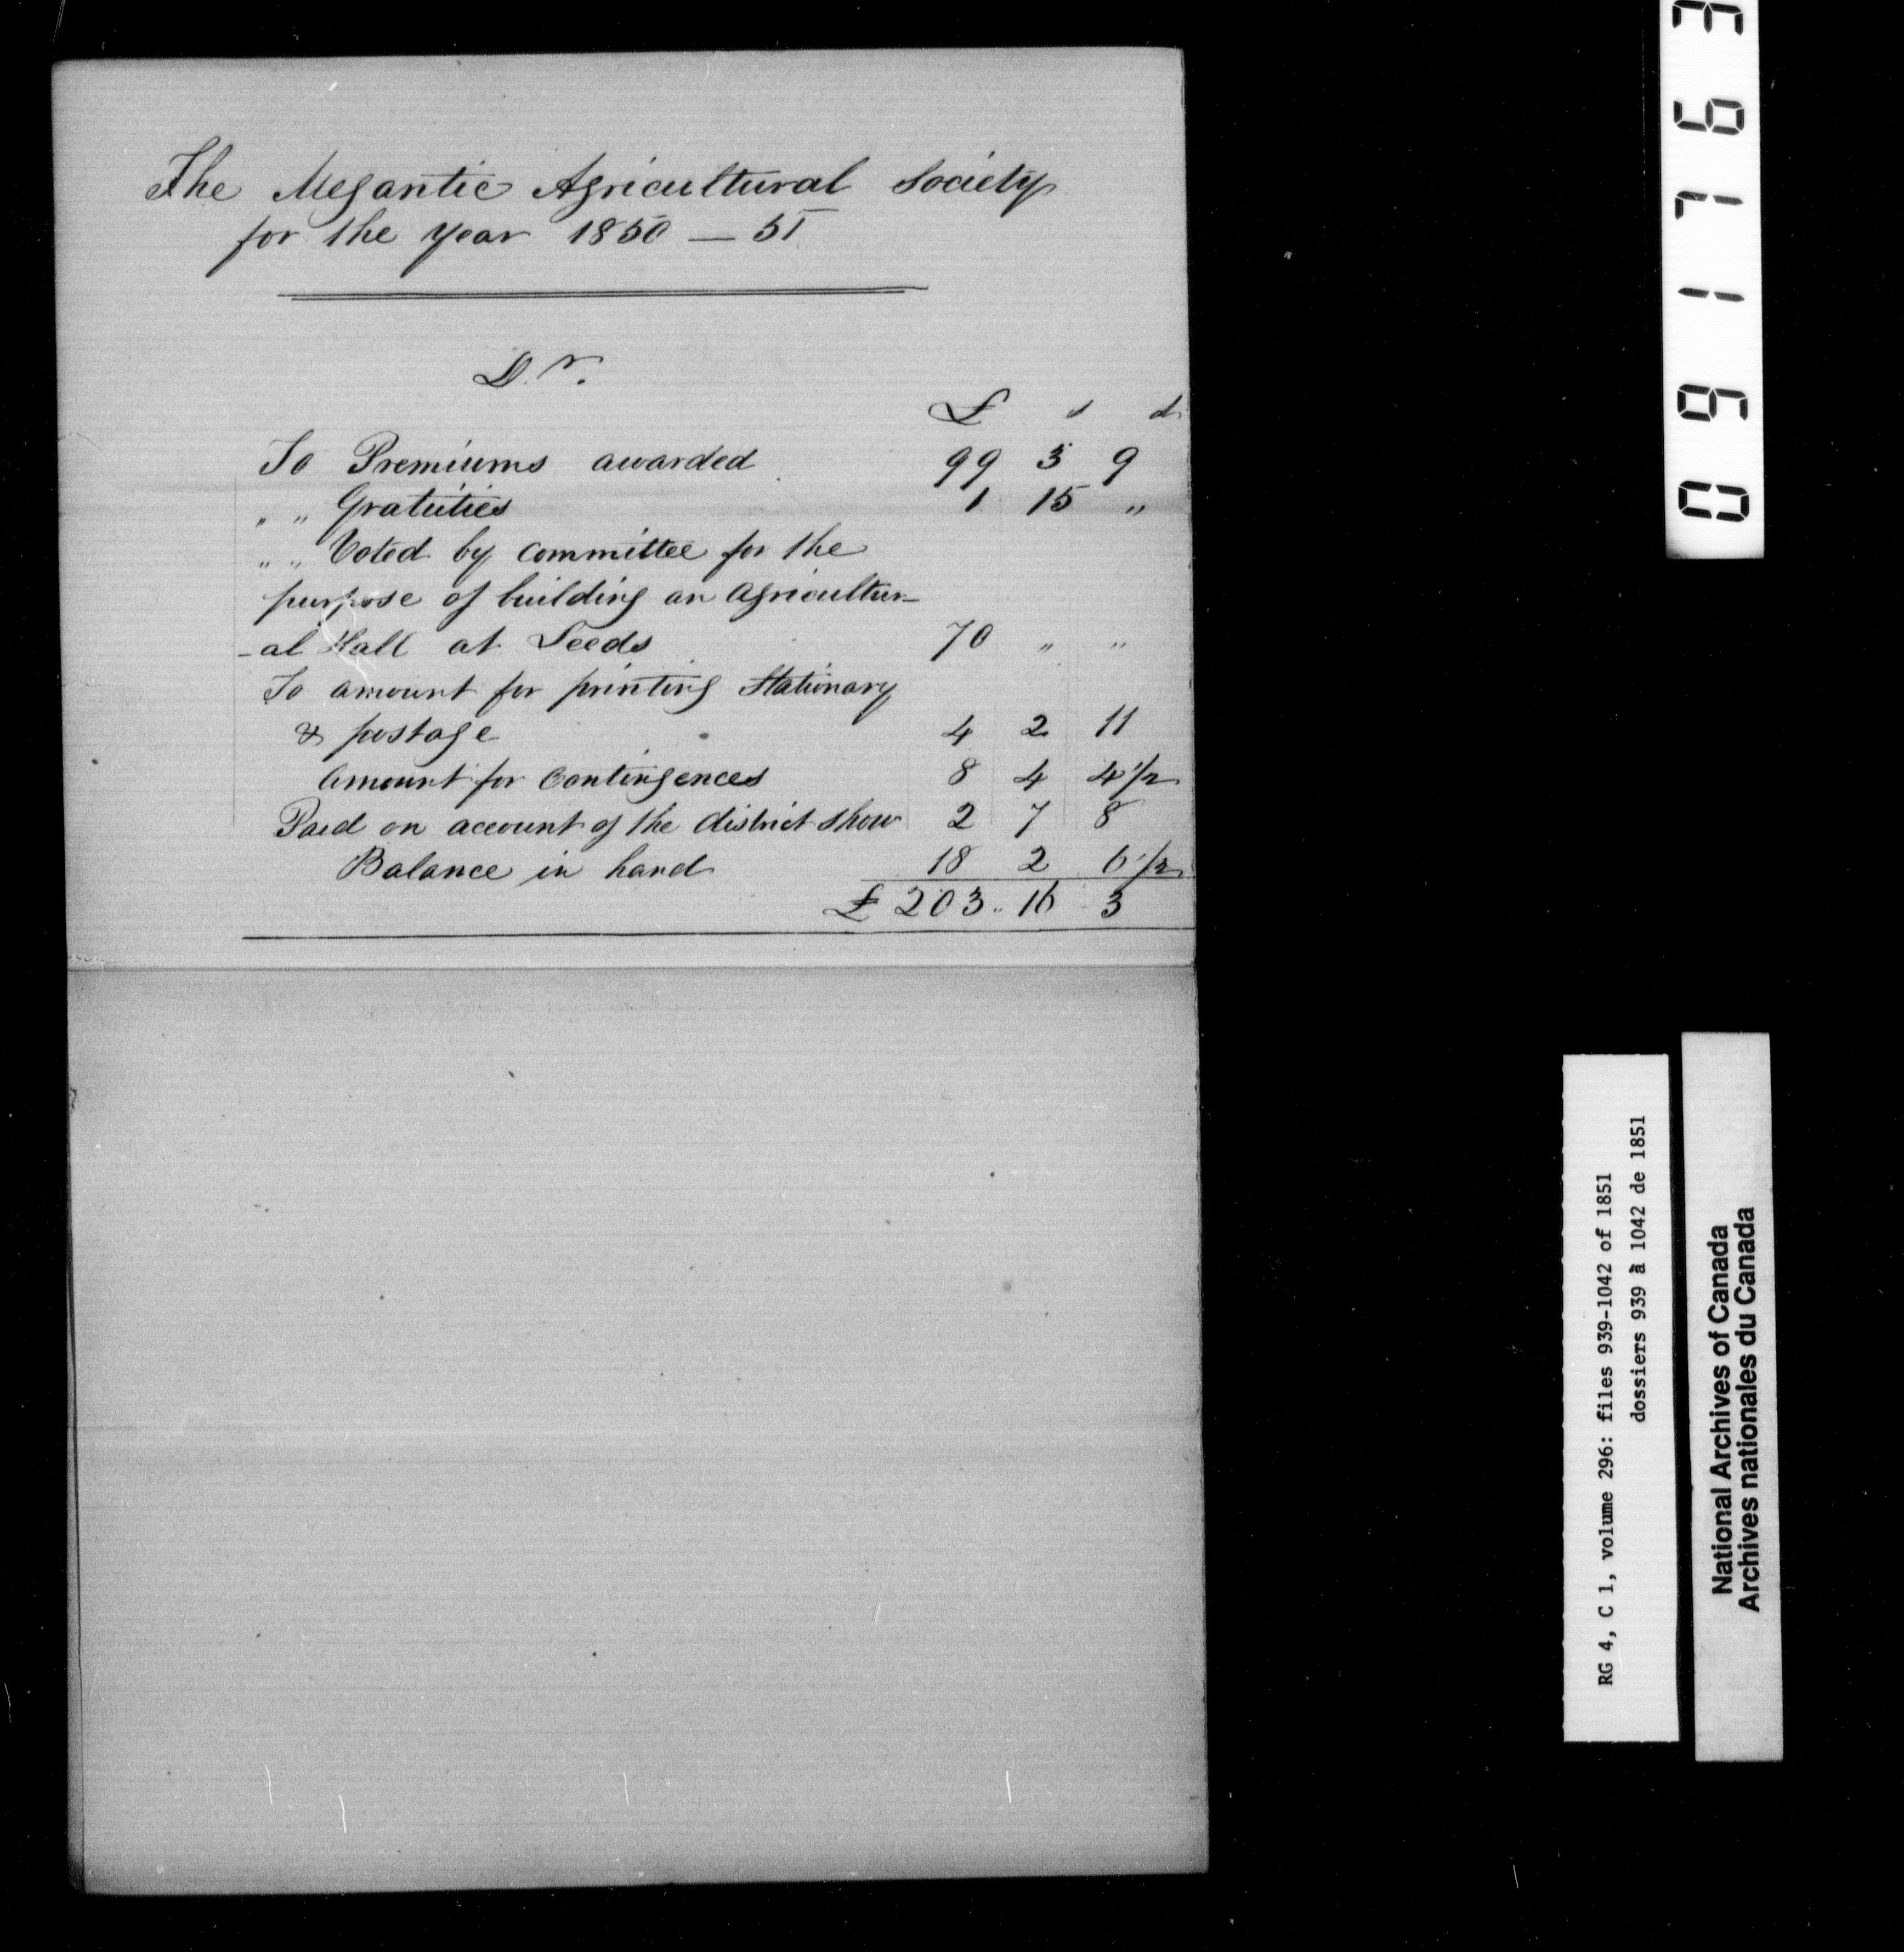 The Megantic Agricultural Society
for the year 1850 — 51
Dr.
£ s d
To Premiums awarded 99 3 9
" " Gratuities 1 15 "
" " Voted by committee for the
purpose of building an Agricultur-
-al Hall at Leeds 70 " "
To amount for printing Stationary
& postage 4 2 11
Amount for Contingences 8 4 4 1/2
Paid on account of the district show 2 7 8
Balance in hand 18 2 6 1/2
£ 203 .. 16 3
091763
RG 4, C 1, volume 296: files 939-1042 of 1851
dossiers 939 à 1042 de 1851
National Archives of Canada
Archives nationales du Canada